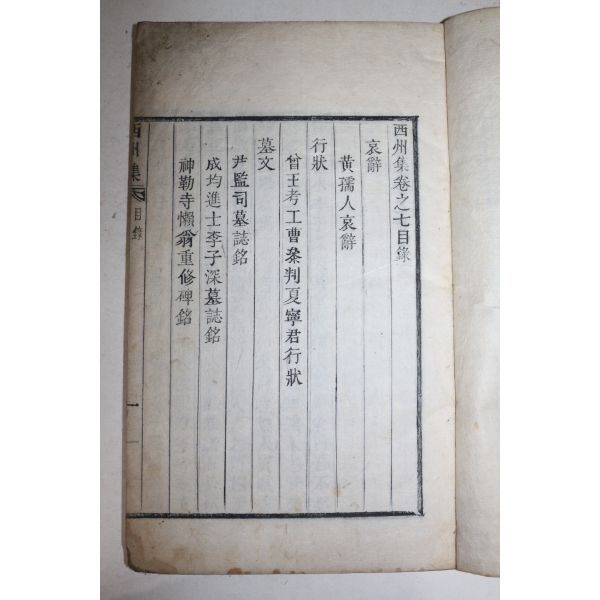 西州集卷之七目錄
哀辭
黃孺人哀辭
行狀
曾王考工曹叅判夏寧君行狀
墓文
尹監司墓誌銘
成均進士李子深墓誌銘
神勒寺懶翁重修碑銘
西州集 目錄 一